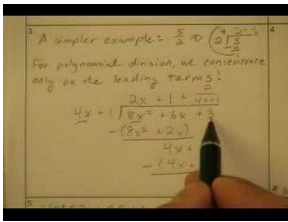 3
4
A simpler example: 5/2 ⇒
2 5
For polynomial division, we concentrate
only on the leading terms!
2
2x + 1 + 4x+1
4x + 1 8x² + 6x + 3
-(8x² + 2x)
4x +
-(4x +
5